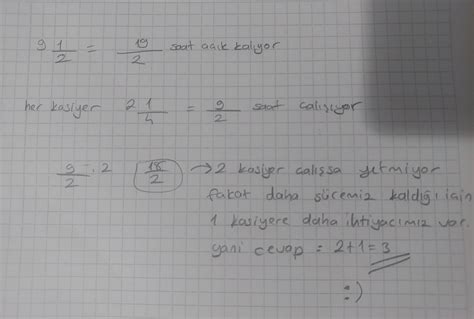 9 1/2 = 19/2 saat açık kalıyor
her kasiyer 2 1/4 = 9/2 saat çalışıyor
9/2 . 2 18/2 → 2 kasiyer çalışsa yetmiyor
fakat daha süremiz kaldığı için
1 kasiyere daha ihtiyacımız var.
yani cevap = 2+1=3
:)